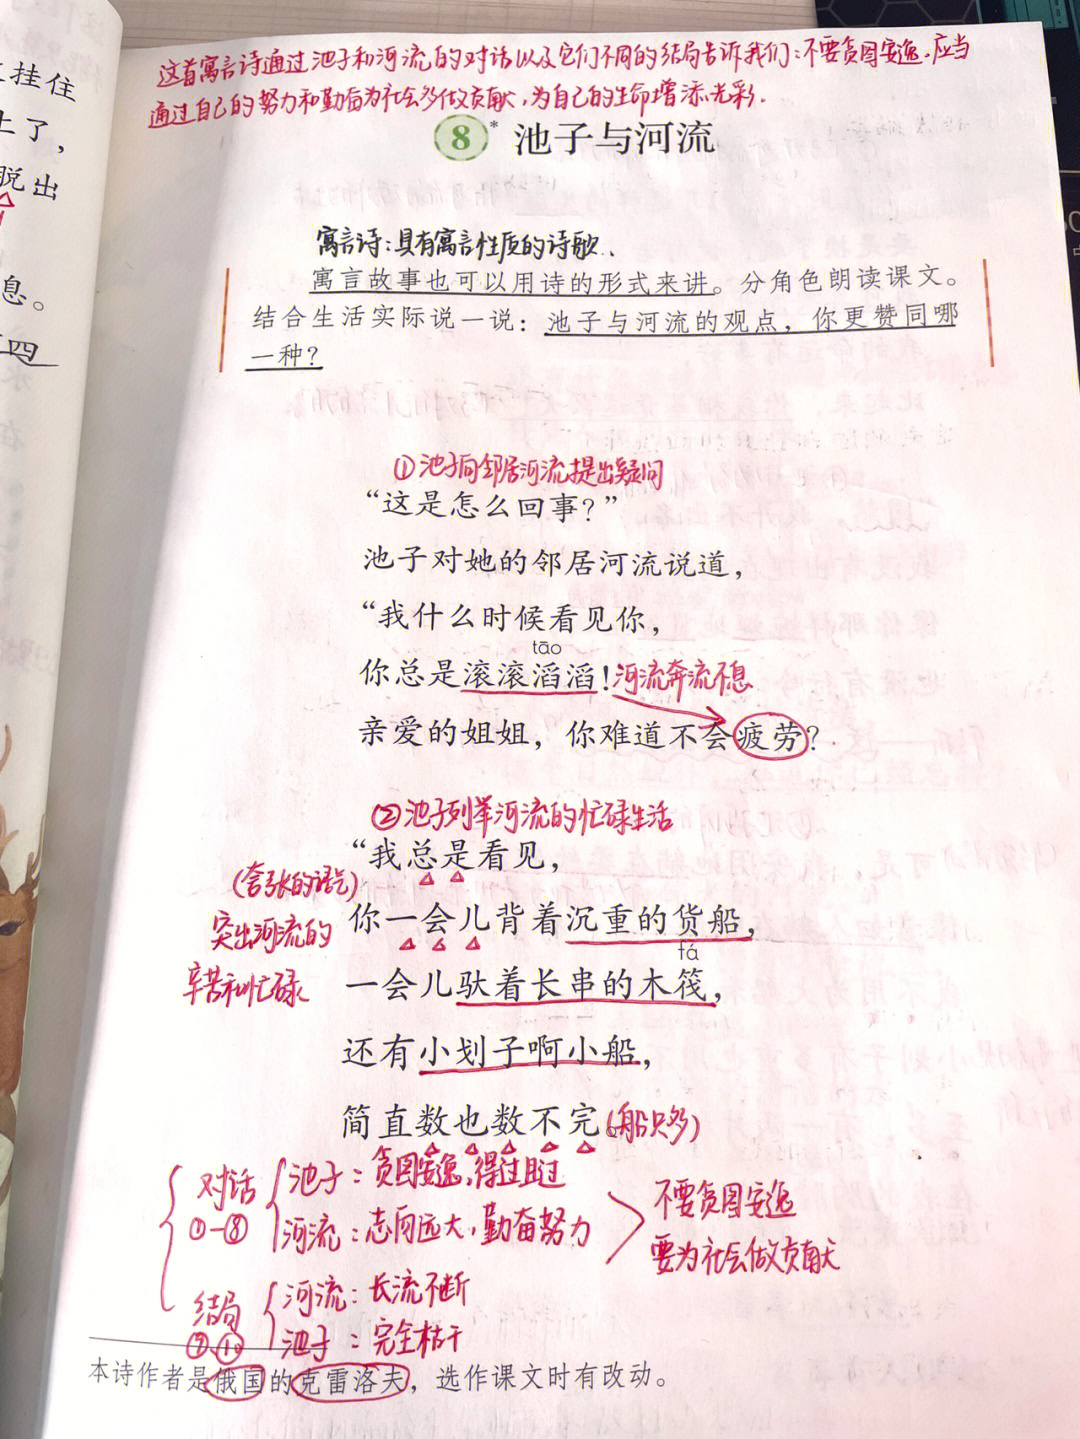 这首寓言诗通过池子和河流的对话以及它们不同的结局告诉我们：不要贪图安逸，应当
通过自己的努力和勤奋为社会多做贡献，为自己的生命增添光彩.
8* 池子与河流
寓言诗：具有寓言性质的诗歌.
寓言故事也可以用诗的形式来讲。分角色朗读课文。
结合生活实际说一说：池子与河流的观点，你更赞同哪
一种？
挂住
上了，
脱出
息。
四
①池子向邻居河流提出疑问
“这是怎么回事？”
池子对她的邻居河流说道，
“我什么时候看见你，
tāo
你总是滚滚滔滔！河流奔流不息
亲爱的姐姐，你难道不会疲劳？
②池子列举河流的忙碌生活
“我总是看见，
(夸张的语气)
你一会儿背着沉重的货船，
突出河流的
fá
辛苦和忙碌
一会儿驮着长串的木筏，
还有小划子啊小船，
简直数也数不完。(船只多)
对话 池子：贪图安逸，得过且过
①—⑧ 河流：志向远大，勤奋努力
不要贪图安逸
要为社会做贡献
结局 河流：长流不断
⑨⑩ 池子：完全枯干
本诗作者是俄国的克雷洛夫，选作课文时有改动。